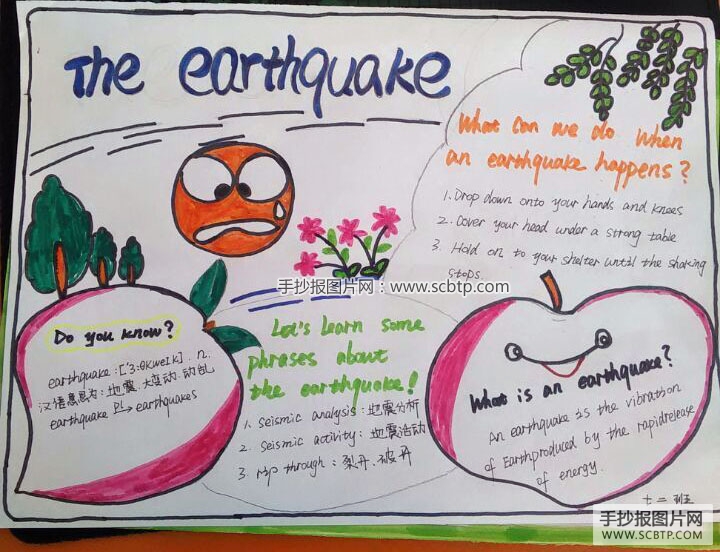 The earthquake
What can we do when
an earthquake happens?
1. Drop down onto your hands and knees
2. Cover your head under a strong table
3. Hold on to your shelter until the shaking
stops.
手抄报图片网：www.scbtp.com
Do you know?
earthquake: ['3:θkweIk]. n.
汉语意思为: 地震. 大震动. 动乱
earthquake 的s earthquakes
Let's learn some
phrases about
the earthquake!
1. seismic analysis: 地震分析
2. seismic activity: 地震活动
3. rip through: 裂开、破开
What is an earthquake?
An earthquake is the vibration
of Earthproduced by the rapidrelease
of energy.
七二班
手抄报图片网
WWW.SCBTP.COM